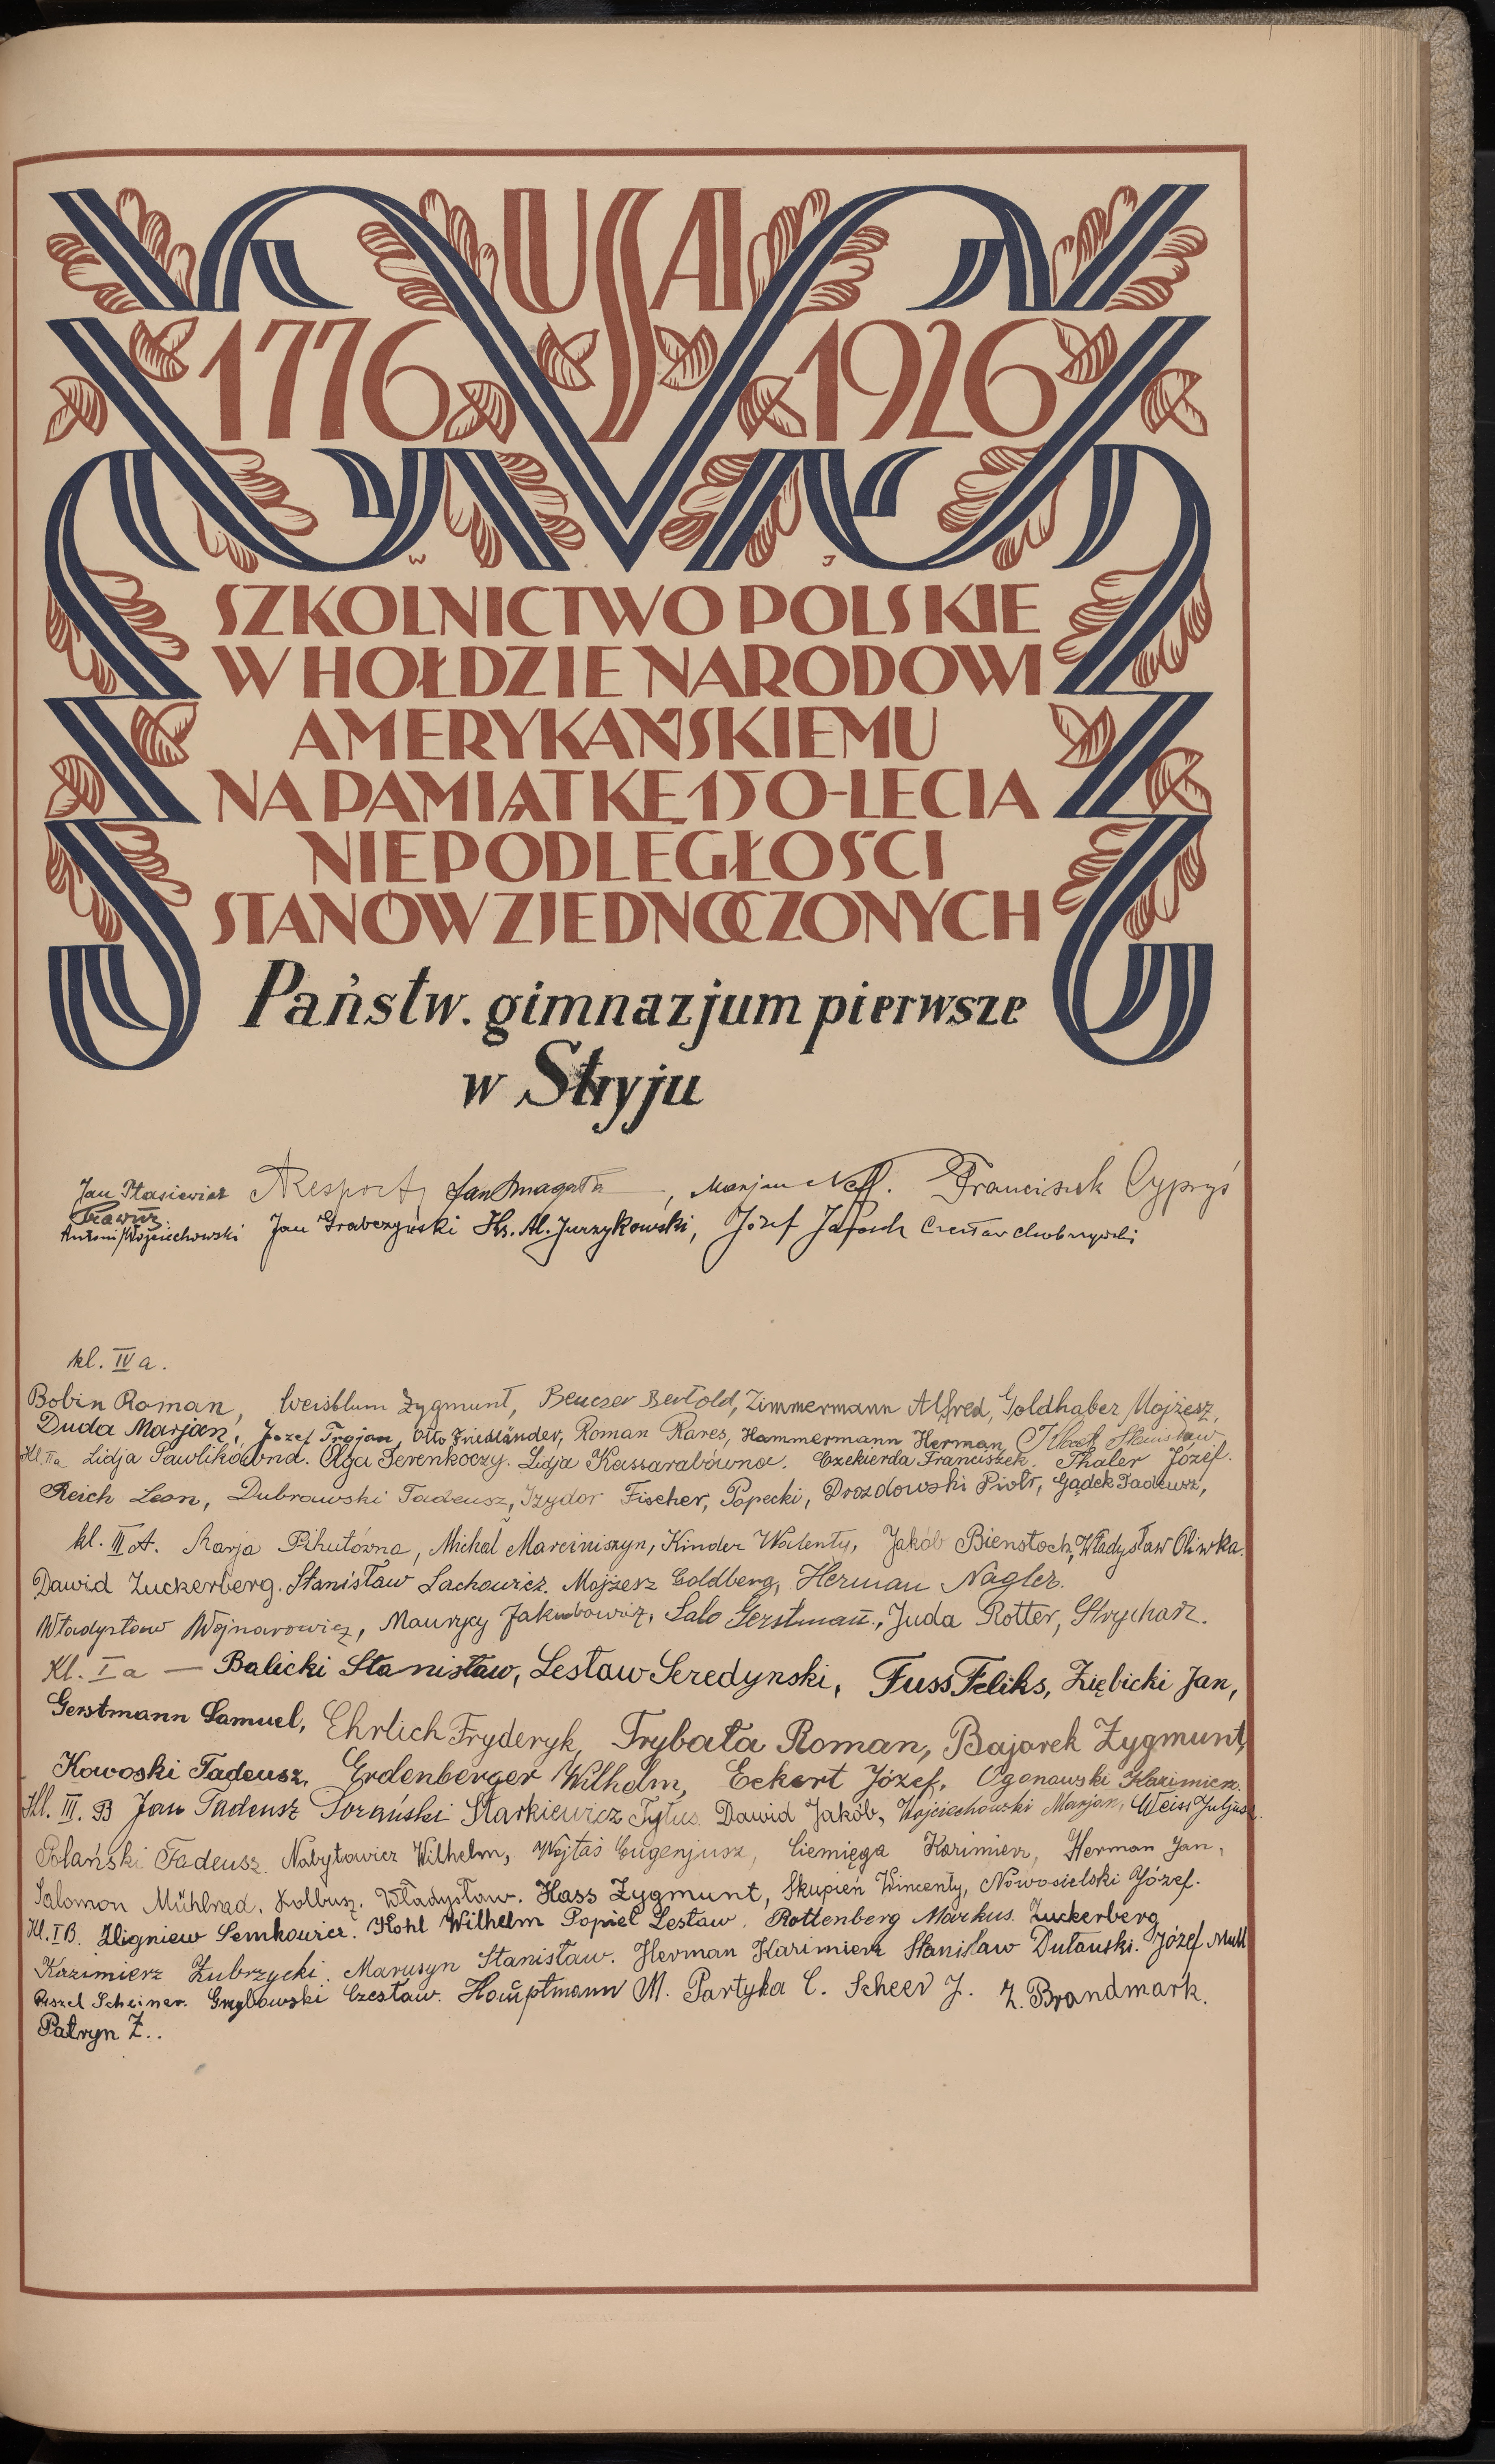 USA
1776 1926
W J
SZKOLNICTWO POLSKIE
W HOŁDZIE NARODOWI
AMERYKAŃSKIEMU
NA PAMIĄTKĘ 150-LECIA
NIEPODLEGŁOŚCI
STANÓW ZJEDNOCZONYCH
Państw. gimnazjum pierwsze
w Stryju
Jan Ptasiewicz Jan Smagała, Marjan Neff. Franciszek Cypryś
Antoni Wojciechowski Jan Grabczyński Ks. Al. Jurzykowski, Józef Czesław Chobrzyński
kl. IV a.
Bobin Roman, Weisblum Zygmunt, Beuczer Bertold, Zimmermann Alfred, Goldhaber Mojżesz,
Duda Marjan, Józef Trojan, Otto Friedländer, Roman Rares, Hammermann Herman, Stanisław
Kl. IIa Lidja Pawlikówna. Olga Terenkoczy. Lidja Kassarabówna. Czekierda Franciszek. Thaler Józef.
Reich Leon, Dubrawski Tadeusz, Izydor Fischer, Popecki, Drozdowski Piotr, Gądek Tadeusz,
kl. III A. Marja Pihutówna, Michał Marciniszyn, Kinder Walenty, Jakób Bienstock, Władysław Oliwka.
Dawid Zuckerberg. Stanisław Lachowicz. Mojżesz Goldberg, Herman Nagler.
Władysław Wojnarowicz, Maurycy Jakubowicz, Salo Gerstmann, Juda Rotter, Strycharz.
Kl. I a — Balicki Stanisław, Lesław Seredynski, Fuss Feliks, Ziębicki Jan,
Gerstmann Samuel, Ehrlich Fryderyk, Trybała Roman, Bajorek Zygmunt,
Kowoski Tadeusz, Erdenberger Wilhelm, Eckert Józef, Ogonowski Kazimierz.
Kl. III. B Jan Tadeusz Sorański Starkiewicz Tytus. Dawid Jakób, Wojciechowski Marjan, Weiss Juljusz.
Polański Tadeusz. Nabytowicz Wilhelm, Wojtaś Eugenjusz, Ciemięga Kazimierz, Herman Jan,
Salomon Mühlrad. Kolbusz. Władysław. Hass Zygmunt, Skupień Wincenty, Nowosielski Józef.
Kl. I B. Zbigniew Semkowicz. Kohl Wilhelm Popiel Lesław. Rottenberg Markus. Zuckerberg
Kazimierz Zubrzycki. Marusyn Stanisław. Herman Kazimierz Stanisław Dutauski. Józef Mull
Scheiner. Grzybowski Czesław. Hauptmann M. Partyka C. Scheer J. Z. Brandmark.
Patryn Z..